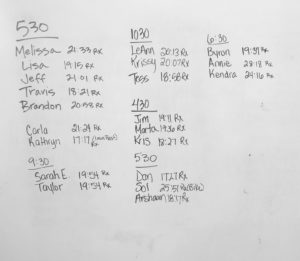 530
Melissa 21:33 Rx
Lisa 19:15 Rx
Jeff 21:01 Rx
Travis 18:21 Rx
Brandon 20:58 Rx
Carla 21:29 Rx
Kathryn 17:17 Rx
9:30
Sarah E. 19:54 Rx
Taylor 19:54 Rx
1030
LeAnn 20:13 Rx
Krissy 20:07 Rx
Tess 18:58 Rx
430
Jim 19:11 Rx
Marta 19:36 Rx
Kris 18:27 Rx
530
Don 17:27 Rx
Sol 25:57 Rx
Arshaan 18:17 Rx
6:30
Byron 19:37 Rx
Annie 28:18 Rx
Kendra 24:16 Rx